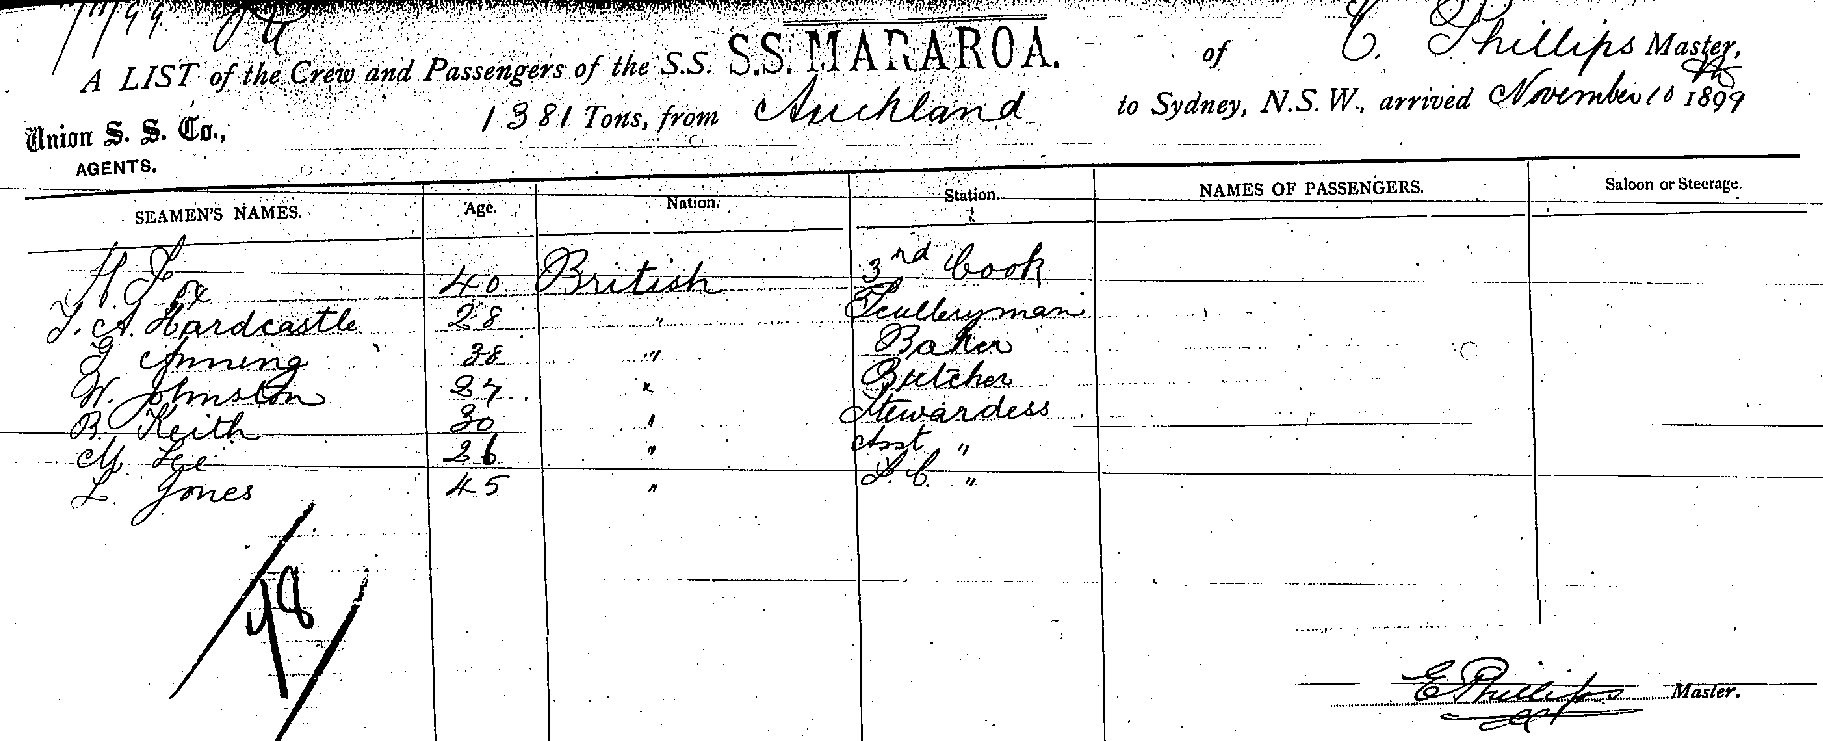 A LIST of the Crew and Passengers of the S.S. S.S. MARAROA. of E. Phillips Master,
1381 Tons, from Auckland to Sydney, N.S.W., arrived November 10 1899
Union S. S. Co.,
AGENTS.
SEAMEN'S NAMES. Age. Nation. Station. NAMES OF PASSENGERS. Saloon or Steerage.
H. Fox 40 British 3rd Cook
T. A. Hardcastle 28 " Sculleryman
G Anning 38 " Baker
W. Johnston 27 " Butcher
B. Keith 30 " Stewardess
M. Lee 26 " Asst "
L. Jones 45 " S. C. "
48
E Phillips Master.